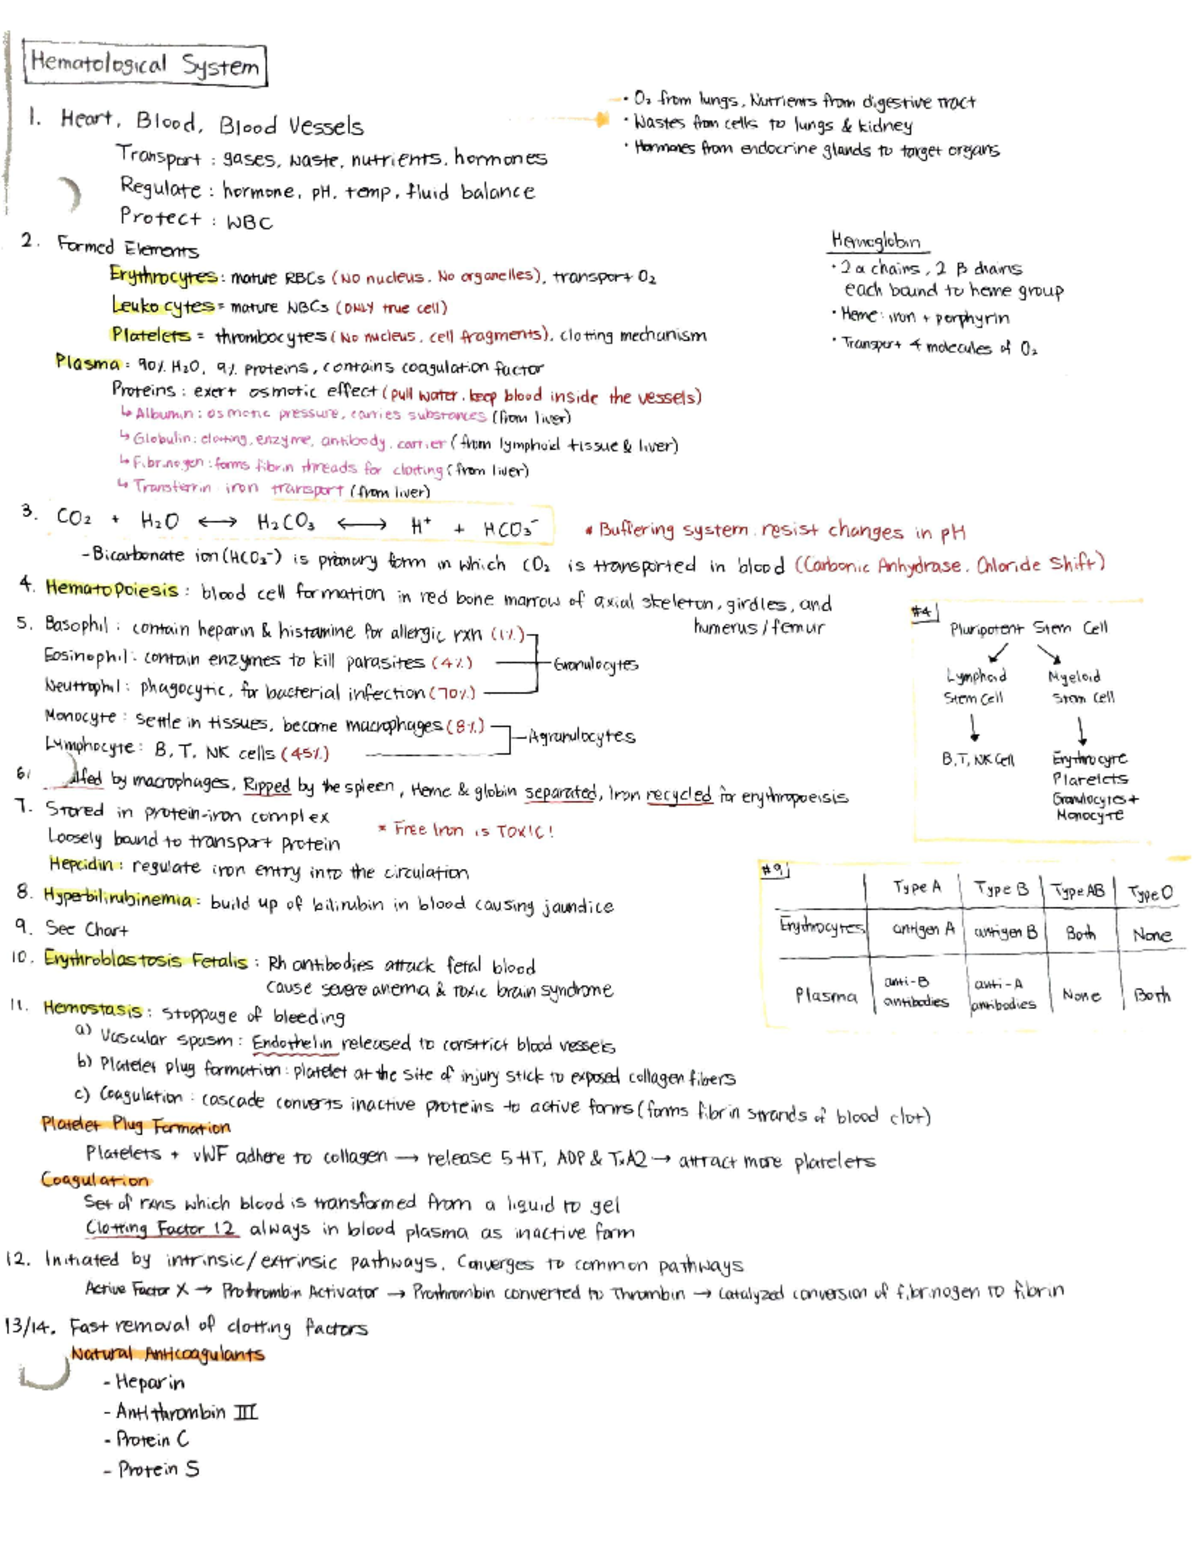 Hematological System
1. Heart, Blood, Blood Vessels
Transport: gases, waste, nutrients, hormones
Regulate: hormone, pH, temp, fluid balance
Protect: WBC
• O₂ from lungs, Nutrients from digestive tract
• Wastes from cells to lungs & kidney
• Hormones from endocrine glands to target organs
2. Formed Elements
Erythrocytes: mature RBCs (No nucleus. No organelles), transport O₂
Leukocytes = mature WBCs (ONLY true cell)
Platelets = thrombocytes (No nucleus, cell fragments), clotting mechanism
Plasma: 90% H₂O, 9% proteins, contains coagulation factor
Proteins: exert osmotic effect (pull water, keep blood inside the vessels)
↳ Albumin: osmotic pressure, carries substances (from liver)
↳ Globulin: clotting, enzyme, antibody, carrier (from lymphoid tissue & liver)
↳ Fibrinogen: forms fibrin threads for clotting (from liver)
↳ Transferrin iron transport (from liver)
Hemoglobin
• 2 α chains, 2 β chains
each bound to heme group
• Heme: iron + porphyrin
• Transport 4 molecules of O₂
3. CO₂ + H₂O ⟷ H₂CO₃ ⟷ H⁺ + HCO₃⁻ * Buffering system. resist changes in pH
- Bicarbonate ion (HCO₃⁻) is primary form in which CO₂ is transported in blood (Carbonic Anhydrase. Chloride Shift)
4. Hematopoiesis: blood cell formation in red bone marrow of axial skeleton, girdles, and
humerus/femur
5. Basophil: contain heparin & histamine for allergic rxn (1%)
Eosinophil: contain enzymes to kill parasites (4%)
Granulocytes
Neutrophil: phagocytic, for bacterial infection (70%)
Monocyte: settle in tissues, become macrophages (8%)
Agranulocytes
Lymphocyte: B, T, NK cells (45%)
#4
Pluripotent Stem Cell
Lymphoid Stem Cell
Myeloid Stem Cell
B, T, NK Cell
Erythrocyte
Platelets
Granulocytes +
Monocyte
6. by macrophages, Ripped by the spleen, Heme & globin separated, Iron recycled for erythropoeisis
7. Stored in protein-iron complex
* Free Iron is TOXIC!
Loosely bound to transport protein
Hepcidin: regulate iron entry into the circulation
8. Hyperbilirubinemia: build up of bilirubin in blood causing jaundice
9. See Chart
#9
Type A Type B Type AB Type O
Erythrocytes antigen A antigen B Both None
Plasma anti-B antibodies anti-A antibodies None Both
10. Erythroblastosis Fetalis: Rh antibodies attack fetal blood
cause severe anemia & toxic brain syndrome
11. Hemostasis: stoppage of bleeding
a) Vascular spasm: Endothelin released to constrict blood vessels
b) Platelet plug formation: platelet at the site of injury stick to exposed collagen fibers
c) Coagulation: cascade converts inactive proteins to active forms (forms fibrin strands of blood clot)
Platelet Plug Formation
Platelets + vWF adhere to collagen → release 5-HT, ADP & TxA2 → attract more platelets
Coagulation
Set of rxns which blood is transformed from a liquid to gel
Clotting Factor 12 always in blood plasma as inactive form
12. Initiated by intrinsic/extrinsic pathways. Converges to common pathways
Active Factor X → Prothrombin Activator → Prothrombin converted to Thrombin → Catalyzed conversion of fibrinogen to fibrin
13/14. Fast removal of clotting factors
Natural Anticoagulants
- Heparin
- Antithrombin III
- Protein C
- Protein S